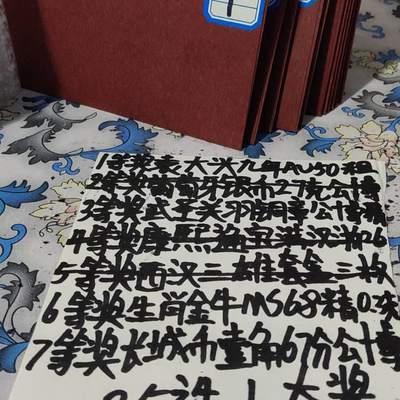 1等奖袁大头九年AU50粗
2等奖葡萄牙银币27克公博
3等奖武王关羽铜章公博
4等奖康熙通宝满汉
5等奖西汉三雄套三枚
6等奖生肖金牛MS68精0.
7等奖长城币壹角67分公博
大奖